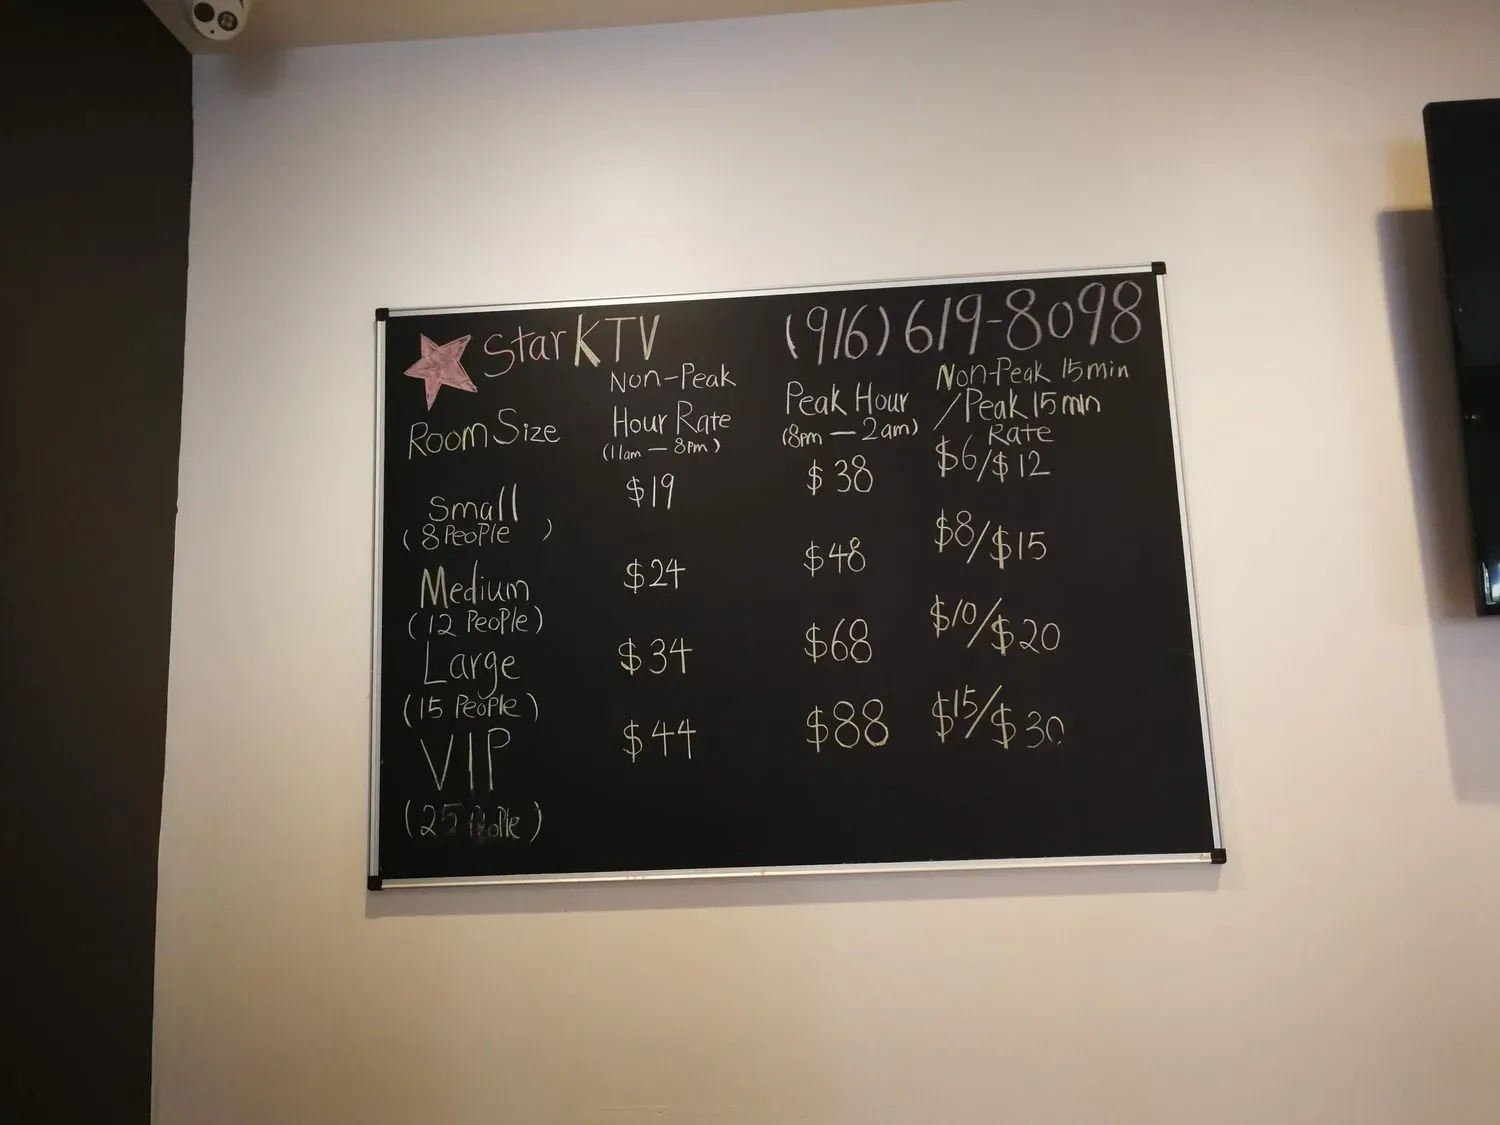 Star KTV (916)619-8098
Room Size
Non-Peak
Hour Rate
(11am — 8pm)
Peak Hour
(8pm — 2am)
Non-Peak 15min
/Peak 15min
Rate
Small
(8 People )
$19
$38
$6/$12
Medium
(12 People)
$24
$48
$8/$15
Large
(15 People)
$34
$68
$10/$20
VIP
(25 People)
$44
$88
$15/$30